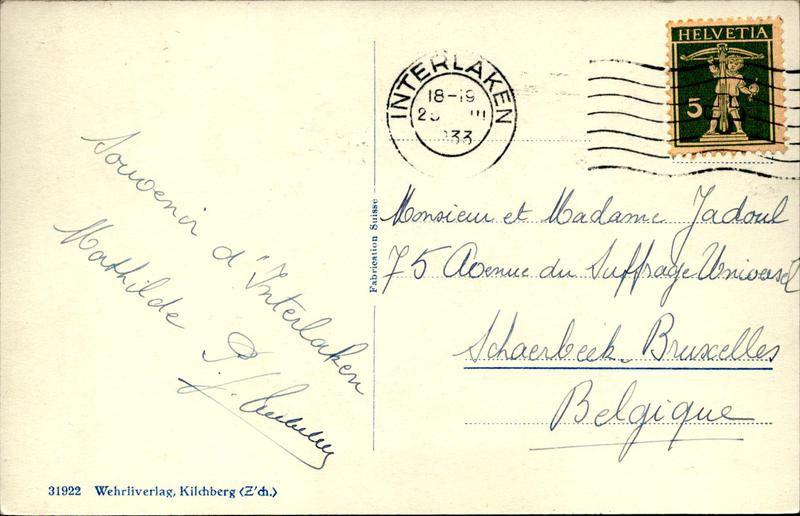 Souvenir d'Interlaken
Mathilde
Fabrication Suisse
INTERLAKEN
18-19
III
33
HELVETIA
5
Monsieur et Madame Jadoul
75 Avenue du Suffrage Universel
Schaerbeek-Bruxelles
Belgique
31922 Wehrliverlag, Kilchberg (Z'ch.)